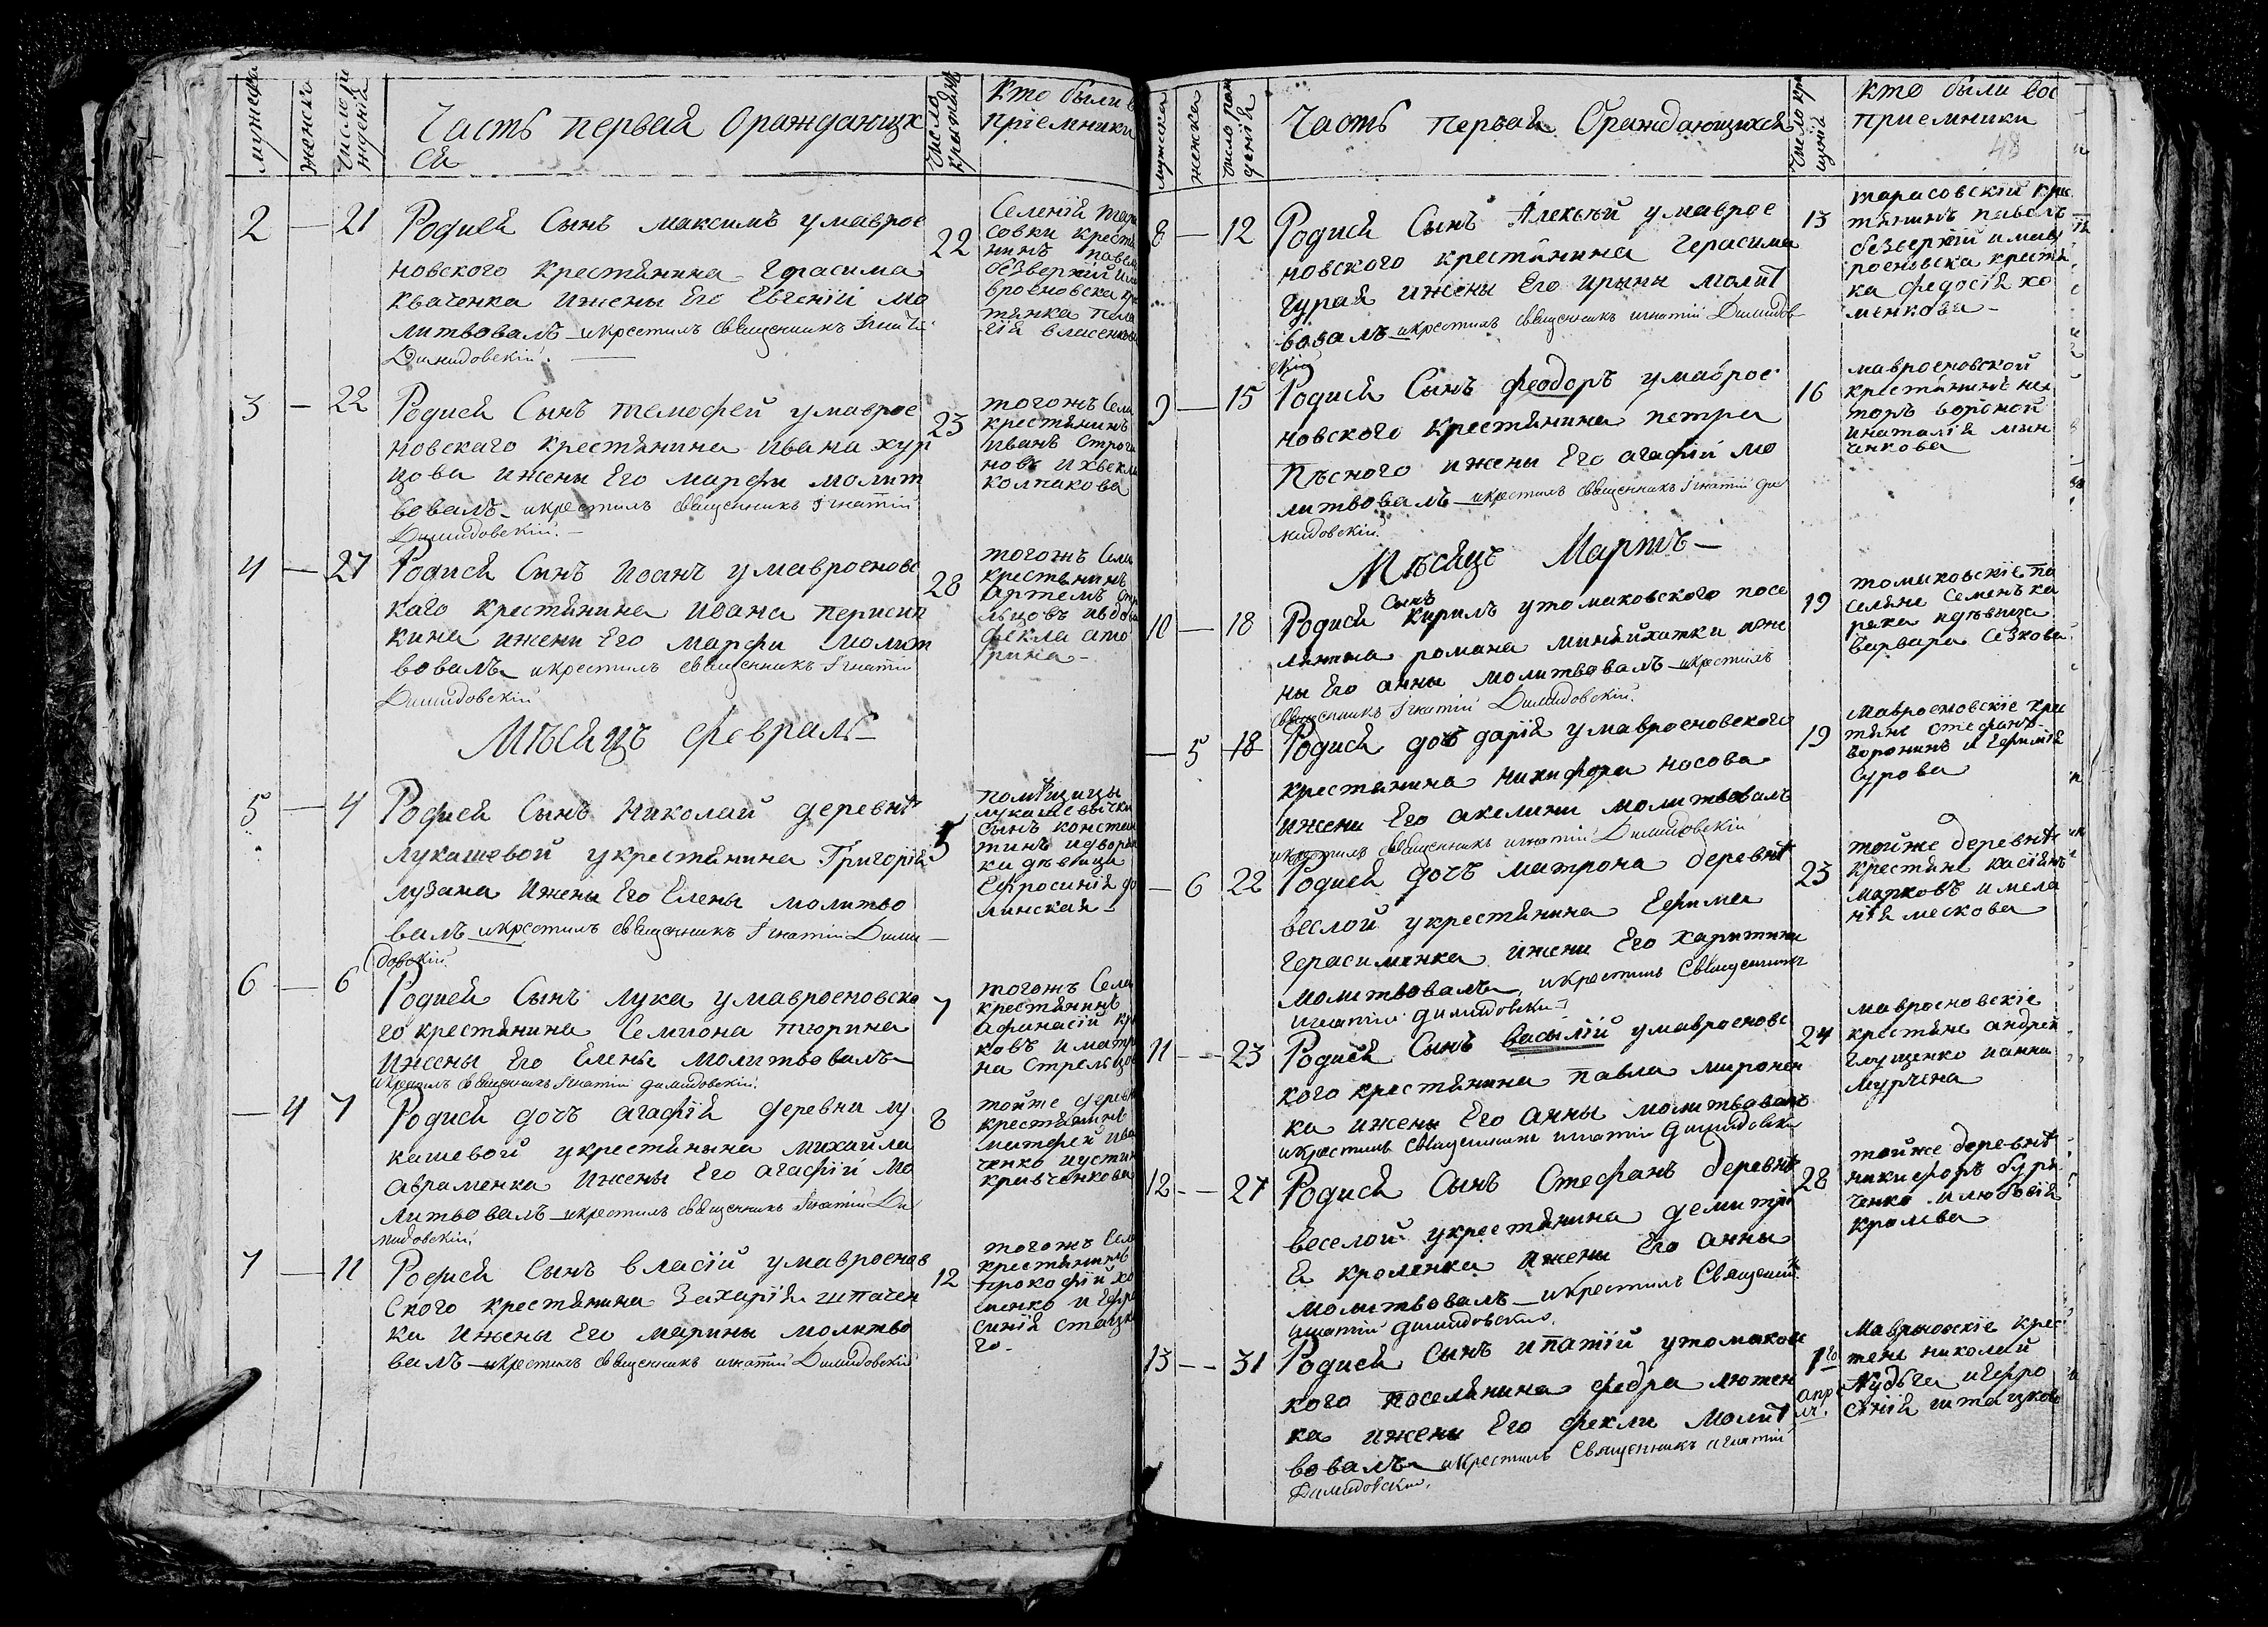 мужеска
женска
число ро
жденія
Часть первая Ораждающих
ся
число
крещенія
Кто были в
пріемники
2 — 21
Родися Сынъ максимъ умаврое
новского крестянина Герасима
кваченка ижены Его Евгеніи мо
литвовалъ и крестилъ священникъ Игнатій
Димидовскій.
22
Селенія тара
совки крестя
нинъ павел
безверхій има
вроеновска кре
стянка пела
гія власенкова
3 — 22
Родися Сынъ темофей умаврое
новскаго крестянина ивана хур
цова ижены Его марфы молит
вовалъ и крестилъ священникъ Игнатій
Димидовскій.
23
тогожъ Села
крестянинъ
иванъ строга
новъ ихвекла
колпакова
4 — 27
Родися Сынъ Иоанъ умавроеновс
каго крестянина ивана перисып
кина ижены Его марфы молит
вовалъ и крестилъ священникъ Игнатій
Димидовскій
28
тогожъ Села
крестянинъ
Артемъ
льцовъ ивдова
фекла
рина
Мѣсяцъ февраль
5 — 4
Родися Сынъ Николай деревнѣ
лукашевой укрестянина Григорія
лузана ижены Его Елены молитво
валъ и крестилъ священникъ Игнатій Дими
довскій
5
помѣщицы
лукашевички
Сынъ констан
тинъ идворян
ки дѣвица
Ефросинія до
линская
6 — 6
Родися Сынъ лука умавроеновска
го крестянина Семиона тюрина
ижены Его Елены молитвовалъ
и крестилъ священникъ Игнатій димидовскій.
7
тогожъ Села
крестянинъ
Афанасій кр
ковъ иматр
на Стрельцов
— 4 7
Родися дочъ агафія деревни лу
кашевой укрестянина михайла
авраменка ижены Его агафіи мо
литвовалъ и крестилъ священникъ Игнатій Ди
мидовскій.
8
тойже дерев
крестянинъ
матфей ива
ченко иустин
кравченкова
7 — 11
Родися Сынъ власій умавроенов
ского крестянина Захарія шпачен
ка ижены Его марины молитво
валъ и крестилъ священникъ игнатій Димидовскій
12
тогожъ Села
крестянинъ
прокофій хо
менко иефро
синія стацко
го
мужеска
женска
число рож
денія
Часть первая Ораждающихся
число кр
щенія
кто были вос
приемники
48
8 — 12
Родися Сынъ Алексѣй умаврое
новского крестянина Герасима
гурая ижены Его ирыны молит
вовалъ и крестилъ священникъ игнатій Димидов
скій
13
тарасовскій кре
тянинъ павелъ
безверхій имав
роеновска крестя
ка федосія хо
менкова
9 — 15
Родися Сынъ феодоръ умаврое
новского крестянина петра
Пѣсного ижены Его агафіи мо
литвовалъ и крестилъ священникъ Игнатій Ди
мидовскій.
16
мавроеновской
крестянинъ нес
торъ вороной
инаталія мин
чнкова
Мѣсяцъ Мартъ
10 — 18
Родися Сынъ Кирилъ утомаковского посе
лянина романа минайхатки иже
ны Его анны молитвовалъ и крестилъ
священникъ Игнатій Димидовскій.
19
томаковскіе по
селяне Семенъ ка
река идѣвица
варвара Сезкова
— 5 18
Родися дочъ дарія умавроеновского
крестянина никифора носова
ижены Его акелины молитвовалъ
и крестилъ священникъ игнатій Димидовскій
19
Мавроеновскіе кре
тяне стефанъ
воронинъ и Евфимія
Сурова
— 6 22
Родися дочъ матрона деревнѣ
веслой укрестянина Ефима
герасименка ижены Его харитины
молитвовалъ и крестилъ Священникъ
игнатій димидовскій
23
тойже деревнѣ
крестяне касіянъ
марковъ имела
нія лескова
11 — 23
Родися Сынъ Василій умавроеновс
кого крестянина павла миронен
ка ижены Его анны молитвовалъ
и крестилъ Священникъ игнатій Димидовскій
24
мавроеновскіе
крестяне андрей
Глущенко ианна
Мурчена
12 — 27
Родися Сынъ Стефанъ деревнѣ
веселой укрестянина демитрі
я кроленка ижены Его анны
молитвовалъ и крестилъ Священни.
игнатій димидовскій.
28
тойже деревнѣ
никифоръ буря
ченко илюбовія
кролева
13 — 31
Родися Сынъ ипатій утомаковс
кого поселянина федра лютен
ка ижены Его феклы молит
вовалъ и крестилъ Священникъ игнатій
Димидовскій.
1го
апре
ля.
Мавроновскіе крес
тяне николай
Кудѣга иефро
сѣнія штацкова